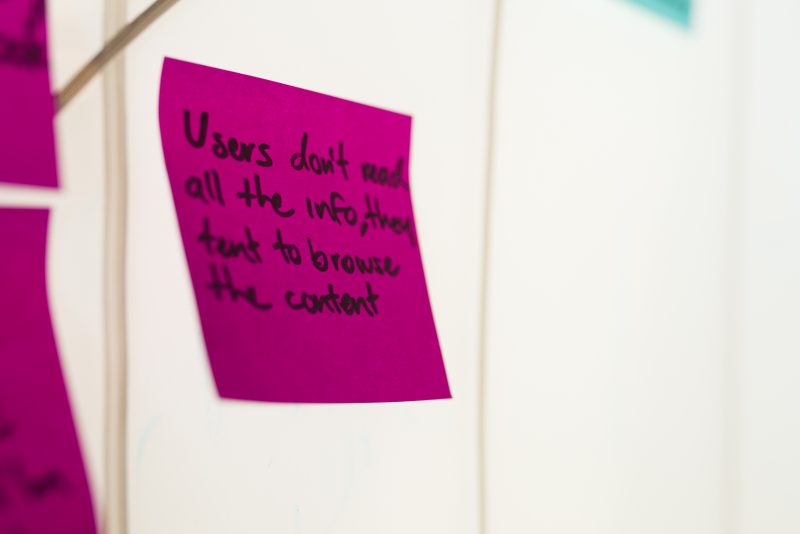 Users don't read
all the info, they
tent to browse
the content